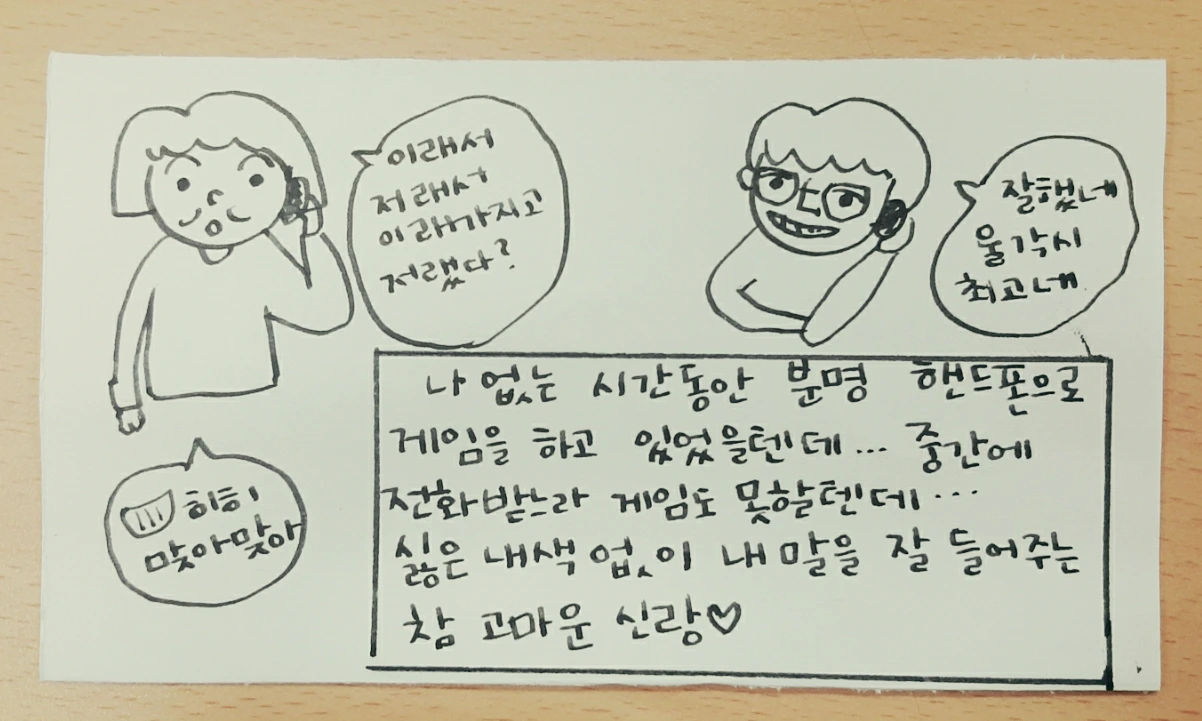 이래서
저래서
이래가지고
저랬다?
잘했네
울각시
최고네
히히
맞아맞아
나 없는 시간동안 분명 핸드폰으로
게임을 하고 있었을텐데... 중간에
전화받느라 게임도 못할텐데...
싫은 내색 없이 내 말을 잘 들어주는
참 고마운 신랑♡